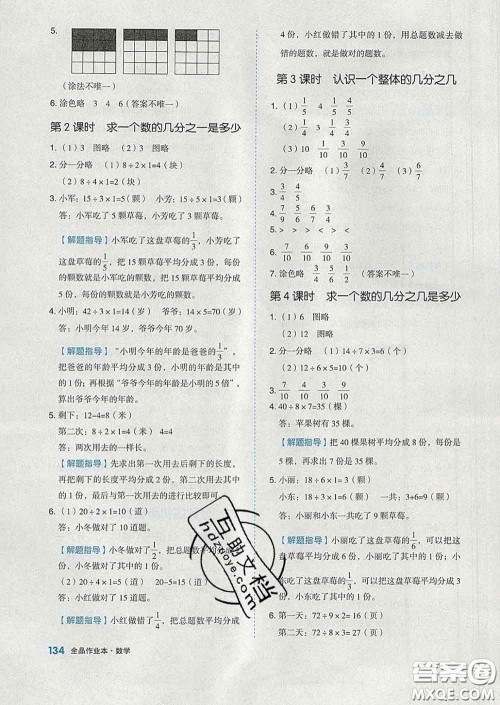 5.
(涂法不唯一)
6. 涂色略 3 4 6(答案不唯一)
第 2 课时 求一个数的几分之一是多少
1. (1) 3 图略 (2) 3 图略
2. 分一分略 (1) 8÷2×1=4(块)
(2) 8÷4×1=2(块)
3. 小军: 15÷3×1=5(颗) 小芳: 15÷5×1=3(颗)
答: 小军吃了 5 颗草莓, 小芳吃了 3 颗草莓。
【解题指导】小军吃了这盘草莓的1/3, 小芳吃了这
盘草莓的1/5, 把 15 颗草莓平均分成 3 份, 每份的颗
数就是小军吃的颗数; 把 15 颗草莓平均分成 5
份, 每份的颗数就是小芳吃的颗数。
4. 小明: 42÷3×1=14(岁) 爷爷: 14×5=70(岁)
答: 小明今年 14 岁, 爷爷今年 70 岁。
【解题指导】“小明今年的年龄是爸爸的1/3”,
把爸爸今年的年龄平均分成 3 份, 小明占其中的 1
份; 再根据“爷爷今年的年龄是小明的 5 倍”, 就
能算出爷爷今年的年龄。
5. 剩下: 12-4=8(米)
第二次: 8÷2×1=4(米) 4=4
答: 两次用去的一样长。
【解题指导】先求出第一次用去后剩下的长度,
再把剩下的长度平均分成 2 份, 第二次用去其中的
1 份, 最后与第一次用去的长度进行比较即可。
6. (1) 20÷2×1=10(道)
答: 小冬做对了 10 道题。
【解题指导】小冬做对了1/2, 把总题数平均分成
2 份, 小冬做对了其中的 1 份。
(2) 20÷4×1=5(道) 20-5=15(道)
答: 小红做对了 15 道题。
【解题指导】小红做错了1/4, 把总题数平均分成
134 全品作业本·数学
4 份, 小红做错了其中的 1 份, 用总题数减去做
错的题数, 就是做对的题数。
第 3 课时 认识一个整体的几分之几
1. (1) 1/5 4/5 (2) 1/4 3/4
(3) 1/10 3/10
2. 分一分略 (1) 3/7 (2) 4/7
4. 7/9 5/6 4/7 3/4
5. > > < > < >
7. 涂色略
(答案不唯一)
第 4 课时 求一个数的几分之几是多少
1. (1) 6 图略
(2) 12 图略
2. 分一分略 (1) 14÷7×3=6(个)
(2) 12÷6×5=10(个)
4. 40÷8×7=35(棵)
答: 苹果树有 35 棵。
【解题指导】把 40 棵果树平均分成 8 份, 每份是
5 棵, 7 份就是 35 棵。
5. 小丽: 18÷6×1=3(颗)
小东: 18÷3×1=6(颗) 一共: 3+6=9(颗)
答: 小丽和小东一共吃了 9 颗草莓。
【解题指导】小丽吃了这盘草莓的1/6, 可以把这
盘草莓平均分成 6 份, 小丽吃了其中的 1 份; 小
东吃了这盘草莓的1/3, 可以把这盘草莓平均分成 3
份, 小东吃了其中的 1 份。
6. 第一天: 72÷9×2=16(页)
第二天: 72÷8×3=27(页)
互助文档
hdzuoye.com
答案圈
MXQE.COM